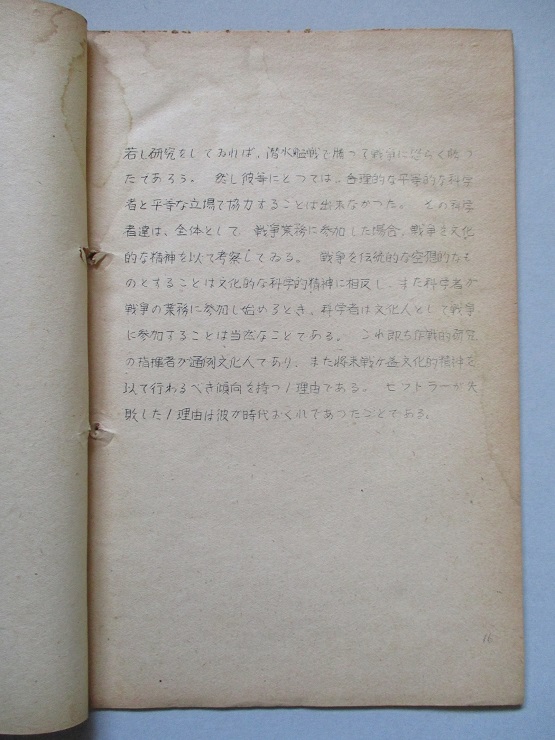 若し研究をしてゐれば、潜水艦戦で勝つて戦争に恐らく勝つ
たであろう。 然し彼等にとつては、合理的な平等的な科学
者と平等な立場で協力することは出来なかつた。 その科学
者達は、全体として 戦争業務に参加した場合、戦争を文化
的な精神を以て考察してゐる。 戦争を伝統的な空想的なも
のとすることは文化的な科学的精神に相反し、また科学者が
戦争の業務に参加し始めるとき、科学者は文化人として戦争
に参加することは当然なことである。 これ即ち作戦的研究
の指揮者が通例文化人であり、また将来戦が益文化的精神を
以て行わるべき傾向を持つ1理由である。 ヒットラーが失
敗した1理由は彼が時代おくれであつたことである。
16